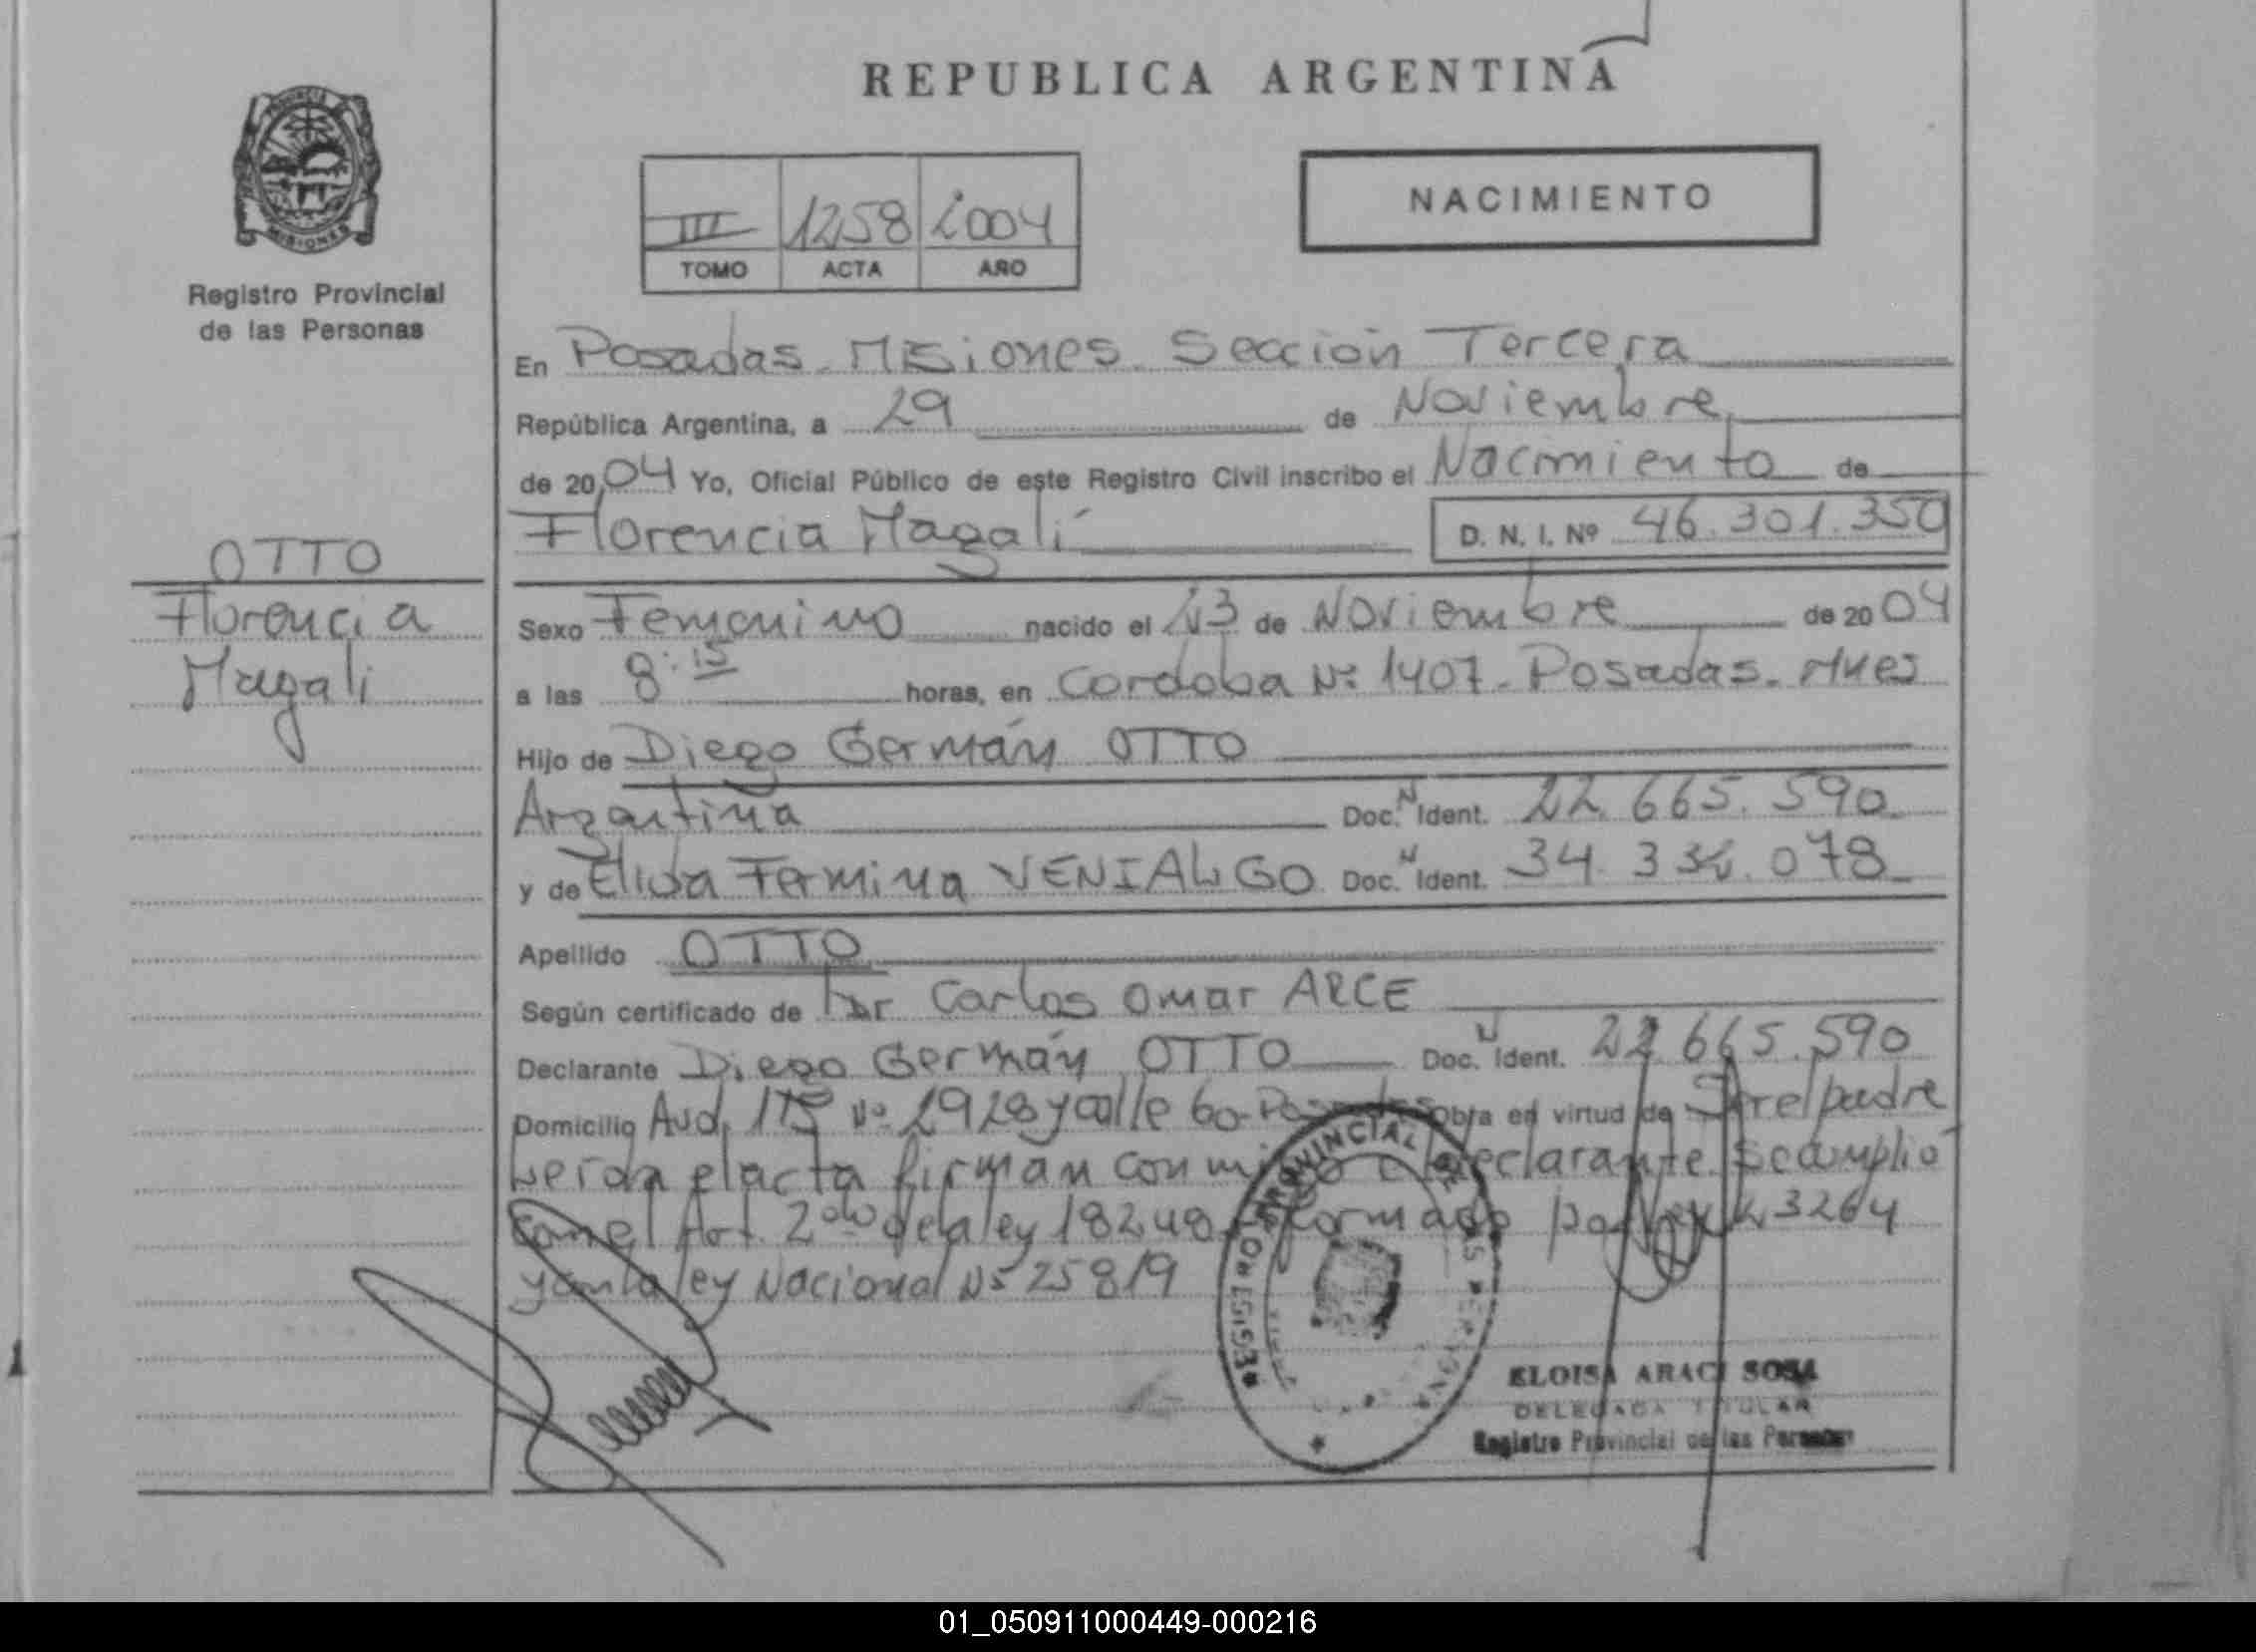 REPUBLICA ARGENTINA
PROVINCIA
MISIONES
Registro Provincial
de las Personas
III 1258 2004
TOMO ACTA AÑO
NACIMIENTO
En Posadas. Misiones. Sección Tercera
República Argentina, a 29 de Noviembre
de 2004 Yo, Oficial Público de este Registro Civil inscribo el Nacimiento de
Florencia Magalí D. N. I. Nº 46.301.350
OTTO
Florencia
Magali
Sexo Femenino nacido el de Noviembre de 2004
a las 8:15 horas, en Cordoba Nº 1407. Posadas. Mnes
Hijo de Diego Germán OTTO
Argentina Doc. N Ident. 22.665.590
y de Elida Fermina VENIALGO Doc. N Ident. 34.334.078
Apellido OTTO
Según certificado de Dr Carlos Omar ARCE
Declarante Diego Germán OTTO Doc. N Ident. 22.665.590
Domicilio Avd. 115 Nº 2928 y calle 60 Posadas Obra en virtud de Ser el padre
Leida el acta firman conmigo el declarante. Se cumplió
con el Art. 2do de la ley 18248 reformado por Ley 23264
y con la ley Nacional Nº 25819
PROVINCIAL
ELOISA ARACI SOSA
DELEGADA TITULAR
Registro Provincial de las Personas
01_050911000449-000216